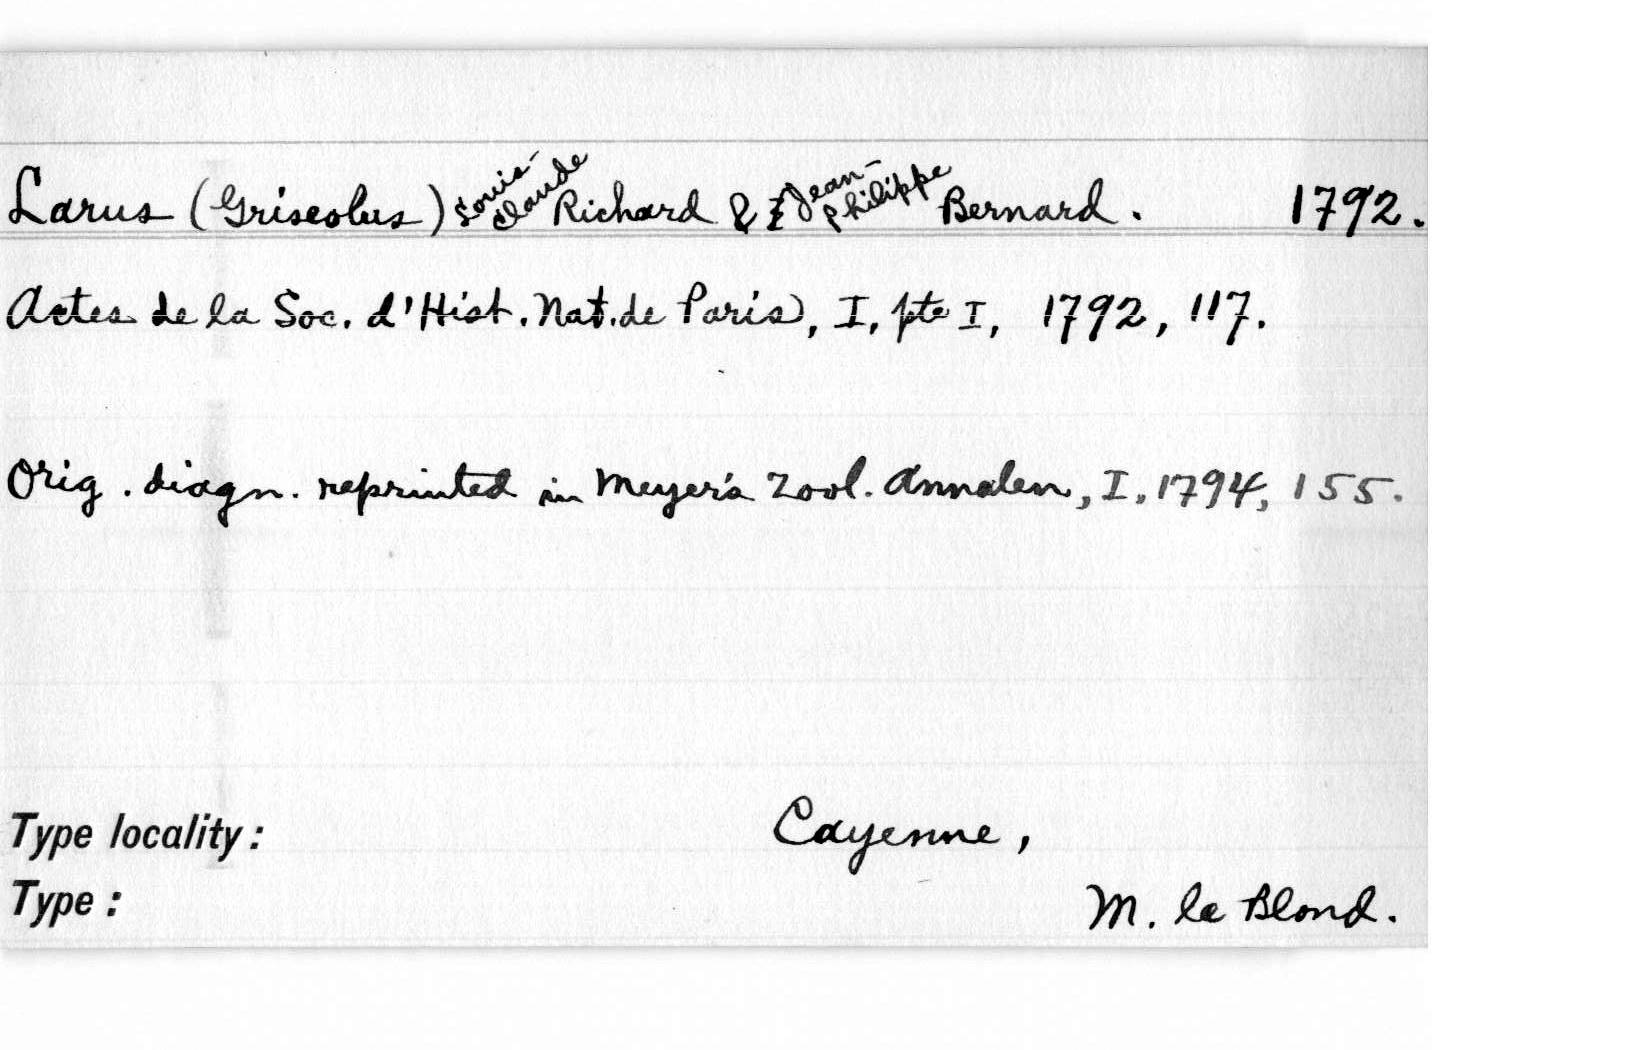 Larus (Griseolus) Louis-Claude Richard & Jean-Philippe Bernard. 1792.
Actes de la Soc. d'Hist. Nat. de Paris), I, pte I, 1792, 117.
Orig. diagn. reprinted in Meyer's Zool. Annalen, I, 1794, 155.
Type locality: Cayenne,
Type: M. le Blond.